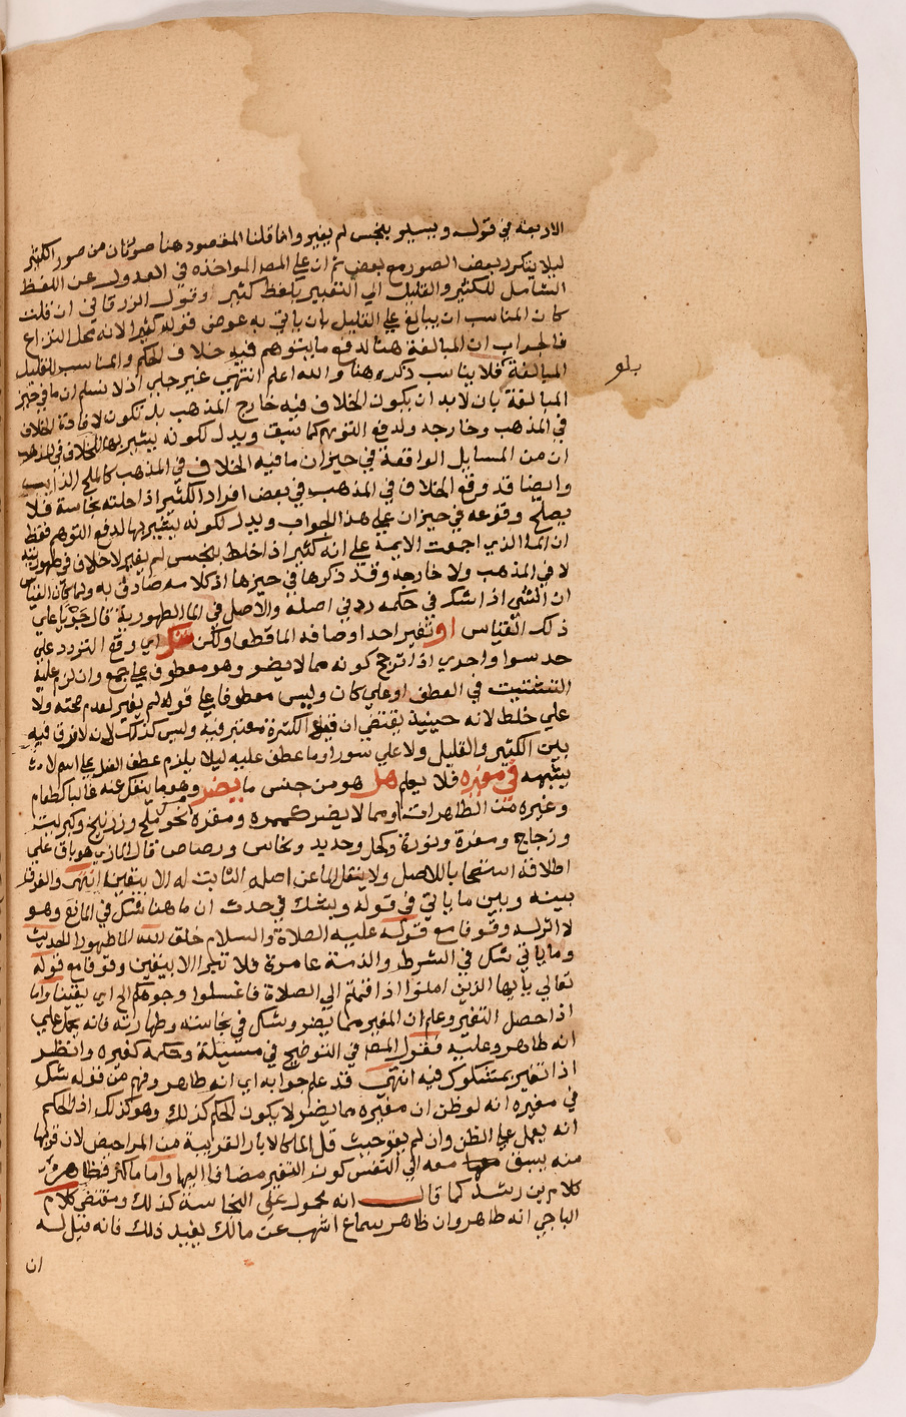 الاربعة في قوله ويسير بنجس لم يغير وانما قلنا المقصود هنا صورتان من صور الكثير
ليلا يتكرر ببعض الصور مع بعض ثم ان على المص المواخذه في العدول عن اللفظ
الشامل للكثير والقليل الي التعبير بلفظ كثير وقول الزرقاني ان قلت
كان المناسب ان يبالغ على القليل بان ياتي به عوض قوله كثيرا لانه محل النزاع
فالجواب ان المبالغة هنا لدفع ما يتوهم فيه خلاف الحكم والمناسب للقليل
المبالغة فلا يناسب ذكره هنا والله اعلم انتهي غير جلي اذ لا نسلم ان ما في حيز
المبالغة بان لابد ان يكون الخلاف فيه خارج المذهب بل تكون لافادة الخلاف
في المذهب وخارجه ولدفع التوهم كما سبق ويدل لكونه يشير بها للخلاف في المذهب
ان من المسايل الواقعة في حيز ان ما فيه الخلاف في المذهب كالملح الذايب
وايضا قد وقع الخلاف في المذهب في بعض افراد الكثير اذا حلته نجاسة فلا
يصلح وقوعه في حيز ان على هذا الجواب ويدل لكونه يشير بها لدفع التوهم فقط
ان الماء الذي اجمعت الايمة على انه كثير اذا خلط بنجس لم يغير لا خلاف في طهوريته
لا في المذهب ولا خارجه وقد ذكرها في حيزها اذ كلامه صادق به ولما كان القياس
ان الشي اذا شك في حكمه رد الي اصله والاصل في الما الطهورية قال جريا على
ذلك القياس او تغير احد اوصافه الما قطعا ولكن شك اي وقع التردد على
حد سوا واحري اذا ترجح كونه مما لا يضر وهو معطوف على جمع وان لزم عليه
التشتيت في العطف او على كان وليس معطوفا على قوله لم يغير لعدم صحته ولا
على خلط لانه حينيذ يقتضي ان قيد الكثرة معتبر فيه وليس كذلك لانه لا فرق فيه
بين الكثير والقليل ولا على سورا وما عطف عليه ليلا يلزم عطف الفعل على اسم لا
يشبهه في مغيره فلا يعلم هل هو من جنس ما يضر وهو ما ينفك عنه غالبا كطعام
وغيره من الطاهرات او مما لا يضر كممره ومقره نحو ملح وزرنيخ وكبريت
وزجاج ومغرة ونورة وكحل وحديد ونحاس ورصاص قال المازري هو باق على
اطلاقه استصحابا للاصل ولا ينتقل الما عن اصله الثابت له الا بيقين انتهى والفرق
بينه وبين ما ياتي في قوله وبشك في حدث ان ما هنا شك في المانع وهو
لا اثر له وقوفا مع قوله عليه الصلاة والسلام خلق الله الما طهورا الحديث
وما ياتي شك في الشرط والذمة عامرة فلا تبرا الا بيقين وقوفا مع قوله
تعالي يايها الذين امنوا اذا قمتم الي الصلاة فاغسلوا وجوهكم الخ اي يقينا واما
اذا حصل التغير وعلم ان المغير مما يضر وشك في نجاسته وطهارته فانه يحمل على
انه طاهر وعليه فقول المص في التوضيح في مسيلة وحكمه كمغيره وانظر
اذا تغير بمشكوك فيه انتهى قد علم جوابه اي انه طاهر وفهم من قوله شك
في مغيره انه لو ظن ان مغيره مما يضر لا يكون الحكم كذلك وهو كذلك اذ الحكم
انه يعمل على الظن وان لم يقو حيث قل الما كالابار القريبة من المراحيض لان قربها
منه يسبق معه الي النفس كون التغير مضافا اليها واما ما كثر فظاهر
كلام بن رشد كما قال انه محمول على النجاسة كذلك ومقتضي كلام
الباجي انه طاهر وان ظاهر سماع اشهب عن مالك يفيد ذلك فانه قيل له
ان